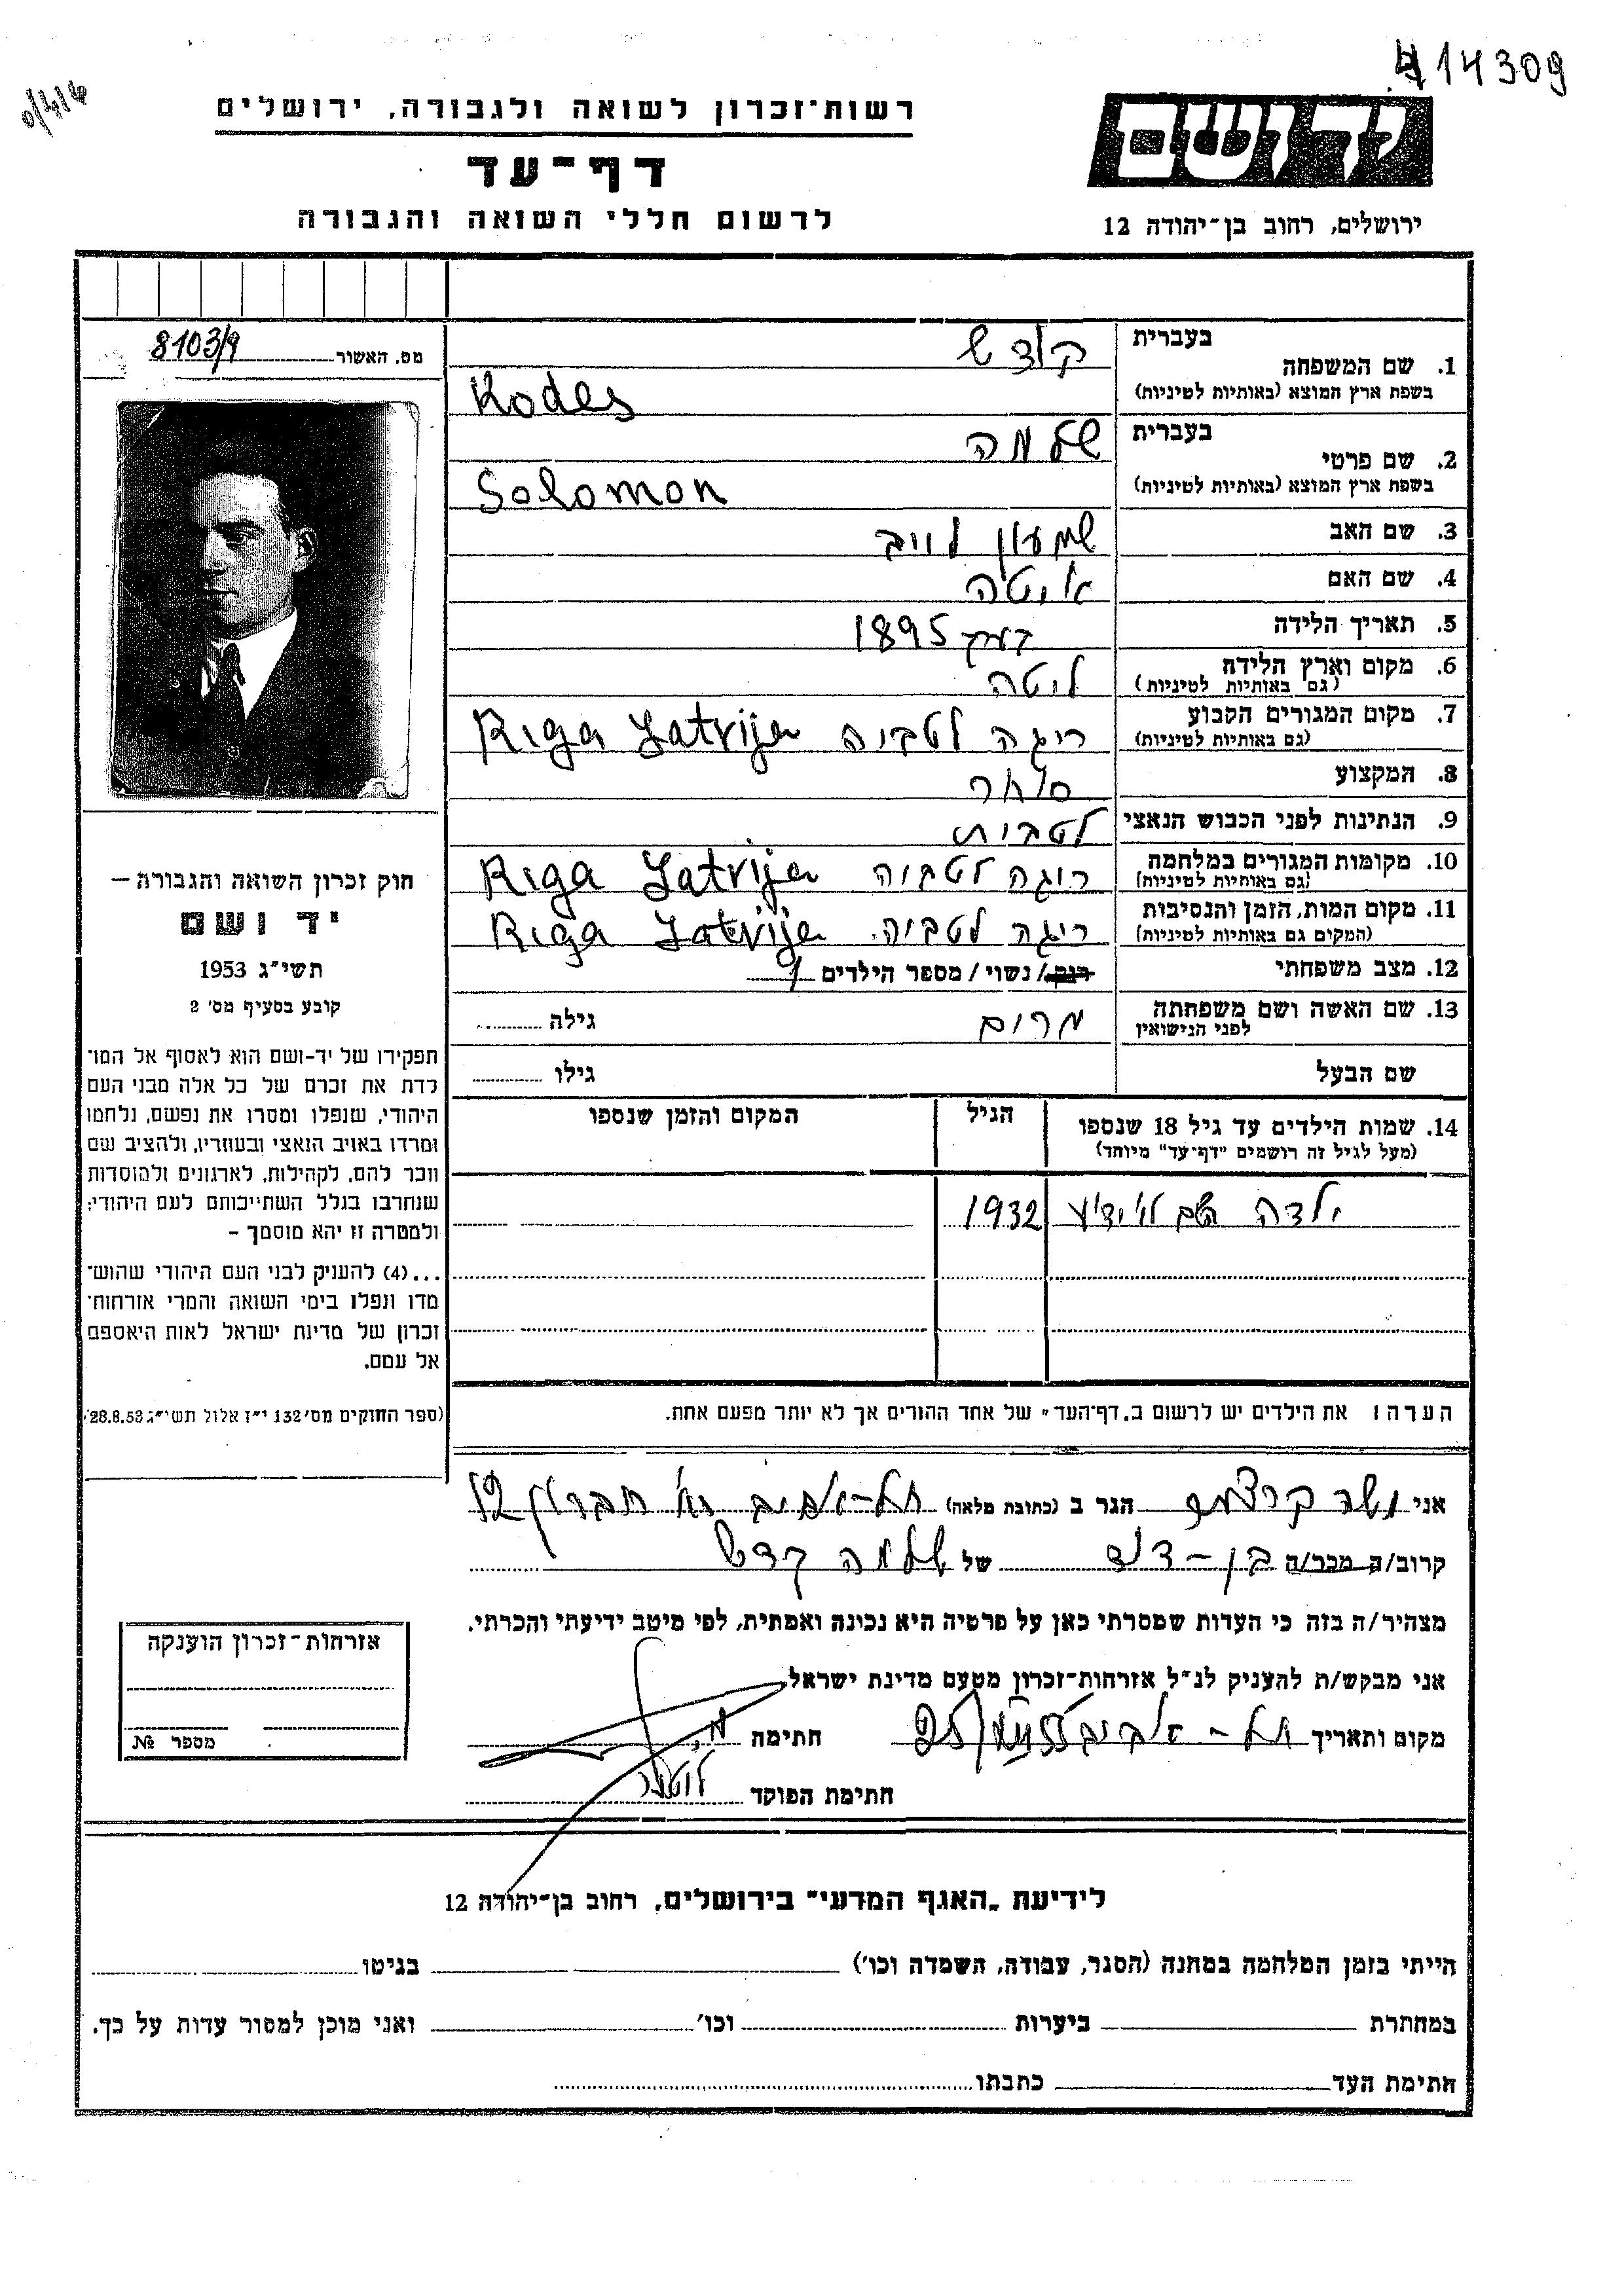 414309
רשות־זכרון לשואה ולגבורה, ירושלים
דף־עד
לרשום חללי השואה והגבורה
יד ושם
ירושלים, רחוב בן־יהודה 12
מס. האשור 8103/9
1. שם המשפחה בעברית קודש
בשפת ארץ המוצא (באותיות לטיניות) Kodes
2. שם פרטי בעברית שלמה
בשפת ארץ המוצא (באותיות לטיניות) Solomon
3. שם האב שמעון לייב
4. שם האם איטה
5. תאריך הלידה בערך 1895
6. מקום וארץ הלידה ליטה
(גם באותיות לטיניות)
7. מקום המגורים הקבוע ריגה לטביה Riga Latvija
(גם באותיות לטיניות)
8. המקצוע סוחר
9. הנתינות לפני הכבוש הנאצי לטבית
10. מקומות המגורים במלחמה ריגה לטביה Riga Latvija
(גם באותיות לטיניות)
11. מקום המות, הזמן והנסיבות ריגה לטביה Riga Latvija
(המקום גם באותיות לטיניות)
12. מצב משפחתי רווק / נשוי / מספר הילדים 1
13. שם האשה ושם משפחתה מרים גילה
לפני הנישואין
שם הבעל גילו
14. שמות הילדים עד גיל 18 שנספו הגיל המקום והזמן שנספו
(מעל לגיל זה רושמים "דף־עד" מיוחד)
ילדה השם לא ידוע 1932
הערה: את הילדים יש לרשום ב"דף־העד" של אחד ההורים אך לא יותר מפעם אחת.
חוק זכרון השואה והגבורה —
יד ושם
תשי"ג 1953
קובע בסעיף מס' 2
תפקידו של יד-ושם הוא לאסוף אל המו־
לדת את זכרם של כל אלה מבני העם
היהודי, שנפלו ומסרו את נפשם, נלחמו
ומרדו באויב הנאצי ובעוזריו, ולהציב שם
וזכר להם, לקהילות, לארגונים ולמוסדות
שנחרבו בגלל השתייכותם לעם היהודי;
ולמטרה זו יהא מוסמך –
...(4) להעניק לבני העם היהודי שהוש־
מדו ונפלו בימי השואה והמרי אזרחות־
זכרון של מדינת ישראל לאות היאספם
אל עמם.
(ספר החוקים מס' 132 י"ז אלול תשי"ג 28.8.53)
אני הגר ב (כתובת מלאה) תל-אביב רח' חברון 12
קרוב/ה מכר/ה בן-דוד של שלמה קדש
מצהיר/ה בזה כי העדות שמסרתי כאן על פרטיה היא נכונה ואמתית, לפי מיטב ידיעתי והכרתי.
אני מבקש/ת להעניק לנ"ל אזרחות־זכרון מטעם מדינת ישראל.
מקום ותאריך תל-אביב חתימה
חתימת הפוקד
אזרחות־זכרון הוענקה
מספר №
לידיעת „האגף המדעי" בירושלים, רחוב בן־יהודה 12
הייתי בזמן המלחמה במחנה (הסגר, עבודה, השמדה וכו') בגיטו
במחתרת ביערות וכו' ואני מוכן למסור עדות על כך.
חתימת העד כתבתו